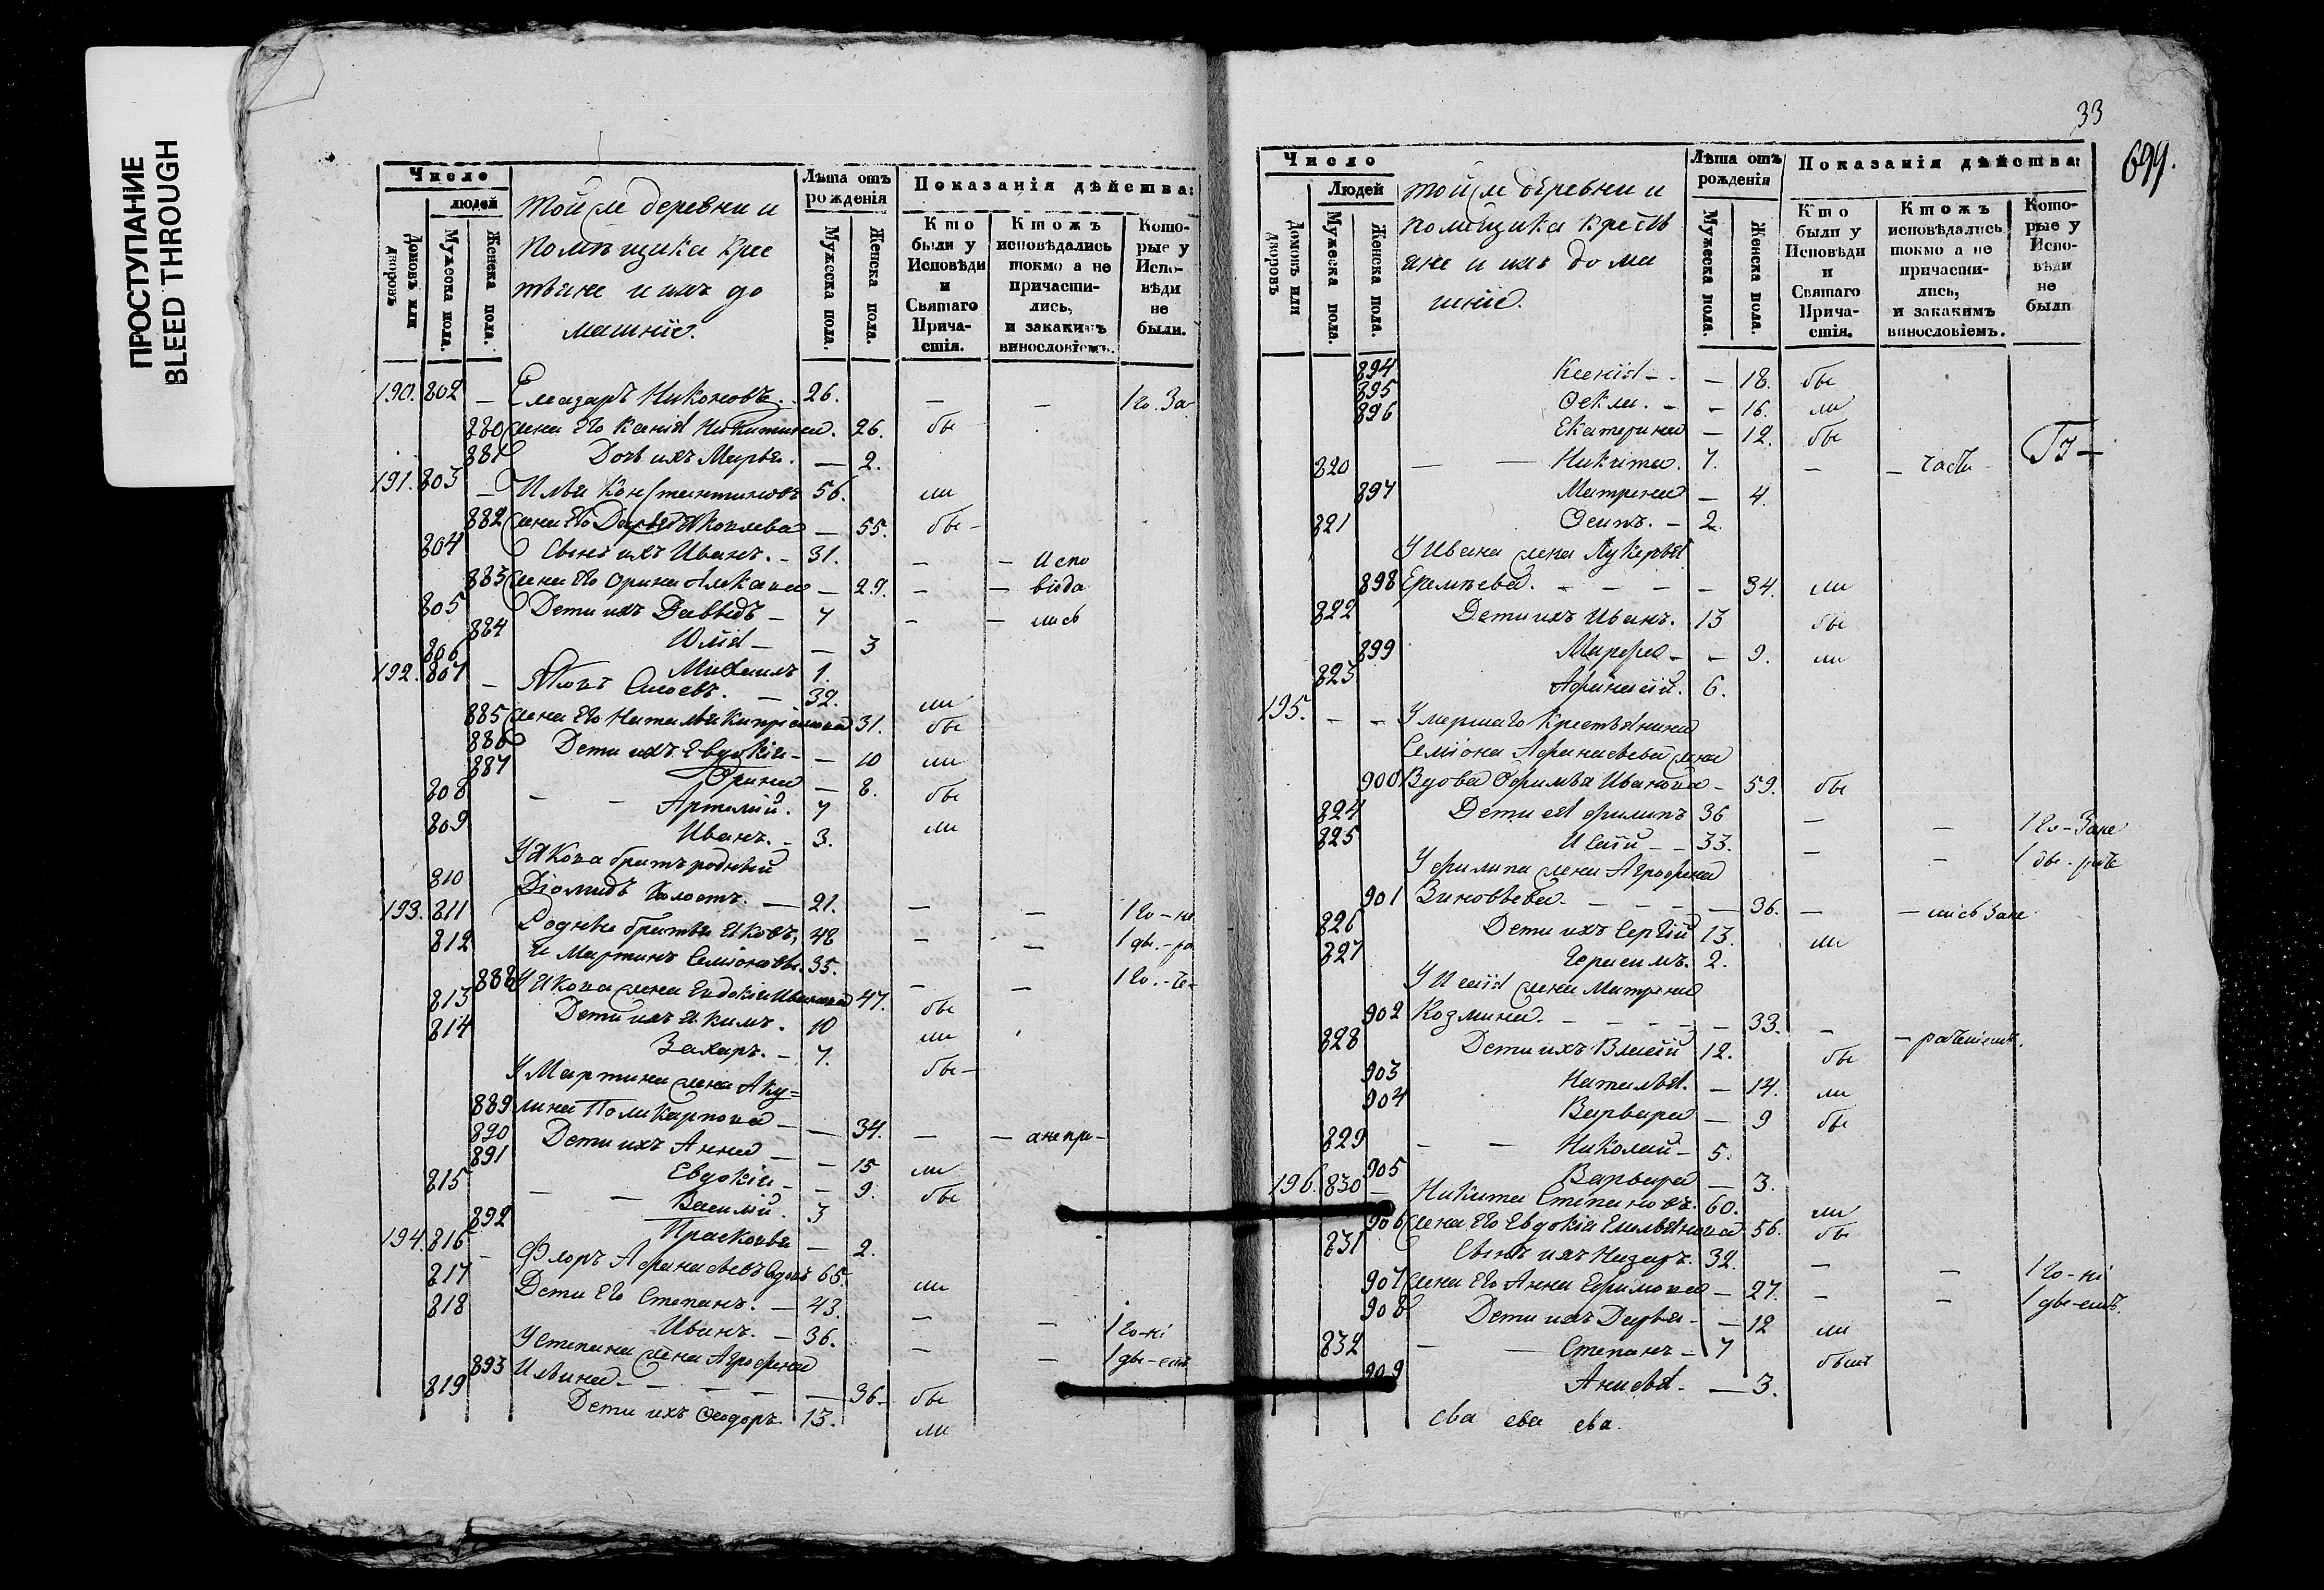 ПРОСТУПАНИЕ
BLEED THROUGH
Число
людей
Домовъ или дворовъ
Мужеска пола.
Женска пола.
Той же деревни и
помещика крес
тьяне и ихъ до
машніе.
Лѣта отъ рожденія
Мужеска пола.
Женска пола.
Показанія дѣйства:
Кто были у Исповѣди и Святаго Причастія.
Ктожъ исповѣдались токмо а не причастились, и закакимъ винословіемъ.
Которые у Исповѣди не были.
190. 802 – Елеазаръ Никоновъ. 26. – – 1го. За
880 жена его Ксенія Никитина. 26. бы
881 Дочь ихъ Марья. – 2.
191. 803 – Илья Константиновъ 56. ли
882 жена его Дарья Яковлева – 55. бы –
804 Сынъ ихъ Иванъ. – 31. – – Испо
883 жена его Орина – 29. – – віода
805 Дети ихъ Давыдъ – 7 – – лись
884 Юлія – – 3
806 Михаилъ 1.
192. 807 – Яковъ Сисоевъ. – 32. ли
885 жена его Наталья Кипріянова 31. бы
886 Дети ихъ Евдокія – – 10 ли
887 Орина – 8. бы
808 – – Артемій. 7
809 Иванъ. – 3. ли
У Якова братъ родный
810 Діомидъ холостъ. – 21. – – 1го – не
193. 811 Родные братья Яковъ, 48 – – 1 две. – ра
812 и Мартинъ Семіоновы. 35. – – 1го. – че –
888 У Якова жена Евдокія Иванова 47. бы
813 Дети ихъ Якимъ. 10 ли
814 Захаръ. – 7. бы –
У Мартина жена Аку=
889 лина Поликарпова – – 34. – – а не при –
890 Дети ихъ Анна – – 15 ли
891 Евдокія – – 9. бы
815 – – Василій. 3
892 Прасковья – 2.
194. 816 – Флоръ Афанасьевъ вдовъ 65. ли
817 Дети его Степанъ. – 43. – – 1го – ні
818 Иванъ. – 36. – – 1 две – емъ
У Степана жена Агрофена
893 Ильина – – – – – 36 – бы
819 Дети ихъ Феодоръ. 13. ли
33
699.
Число
Людей
Домовъ или дворовъ
Мужеска пола.
Женска пола.
той же деревни и
помещика кресть
яне и ихъ дома
шніе.
Лѣта отъ рожденія
Мужеска пола.
Женска пола.
Показанія дѣйства:
Кто были у Исповѣди и Святаго Причастія.
Ктожъ исповѣдались токмо а не причастились, и закакимъ винословіемъ.
Которые у Исповѣди не были
894 Ксенія – – – 18. бы
895 Фекла. – – 16. ли
896 Екатерина – 12. бы
820 – – Никита. 7. – – часть –
897 Матрена – 4.
821 Осипъ. – 2.
У Ивана жена Лукерья
898 Еремѣева. – – – – 34. ли
822 Дети ихъ Иванъ. 13 бы
899 Марфа – – 9. ли
823 Афанасій. 6.
195. – – Умершаго крестьянина
Семіона Афанасьева жена
900 Вдова Офимья Иванова – 59. бы
824 Дети ея Филипъ 36 – – 1го – Зане
825 Исай – – 33. – – 1 две – раче
У Филипа жена Агрофена
901 Зиновьева – – – – 36. – – лись Зане
826 Дети ихъ Сергій 13. ли
827 Герасимъ. 2.
У Исаія жена Матрена
902 Козмина. – – – – – 33. –
828 Дети ихъ Власій 12. бы
903 Наталья. – 14. ли
904 Варвара – 9 бы
829 – – Николай – 5.
905 Варвара – 3.
196. 830 – Никита Степановъ. 60. ли
906 жена его Евдокія Емельянова 56. бы
831 Сынъ ихъ Назаръ. 32. – – 1го – ні
907 жена его Анна Ефимова – 27. – – 1 две – емъ.
908 Дети ихъ Дарья – – 12 ли
832 – – Степанъ – 7 быти
909 Анисья – – 3.
ева ева ева.